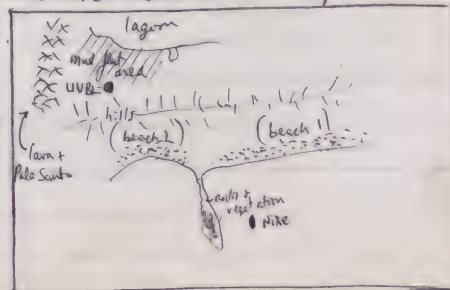 lagoon
mud flat
area
UVBL
hills
(beach 2)
(beach 1)
lava +
Palo Santo
rocks &
vegetation
Nixe